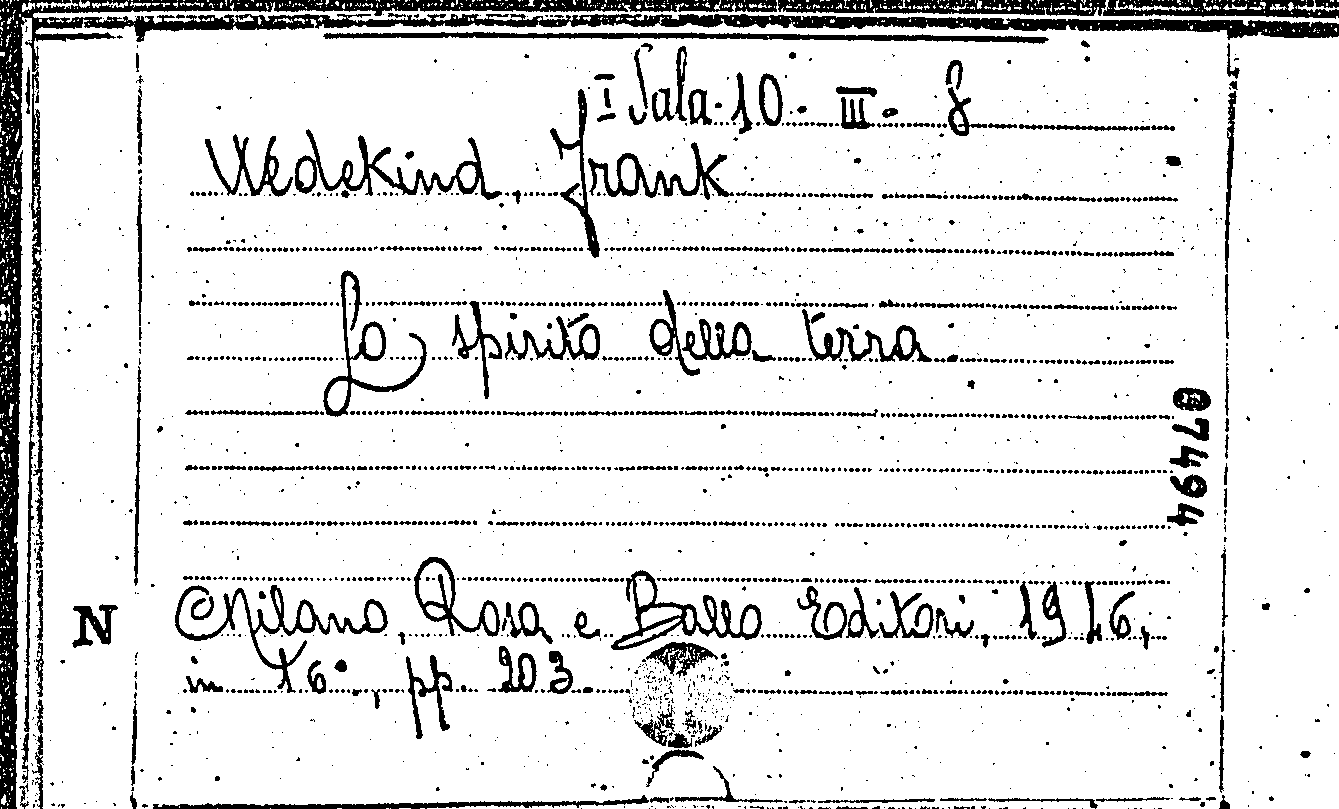 I Sala. 10. III. 8
Wedekind, Frank
Lo spirito della terra.
07494
N
Milano, Rosa e Ballo Editori, 1946,
in 16°., pp. 203.